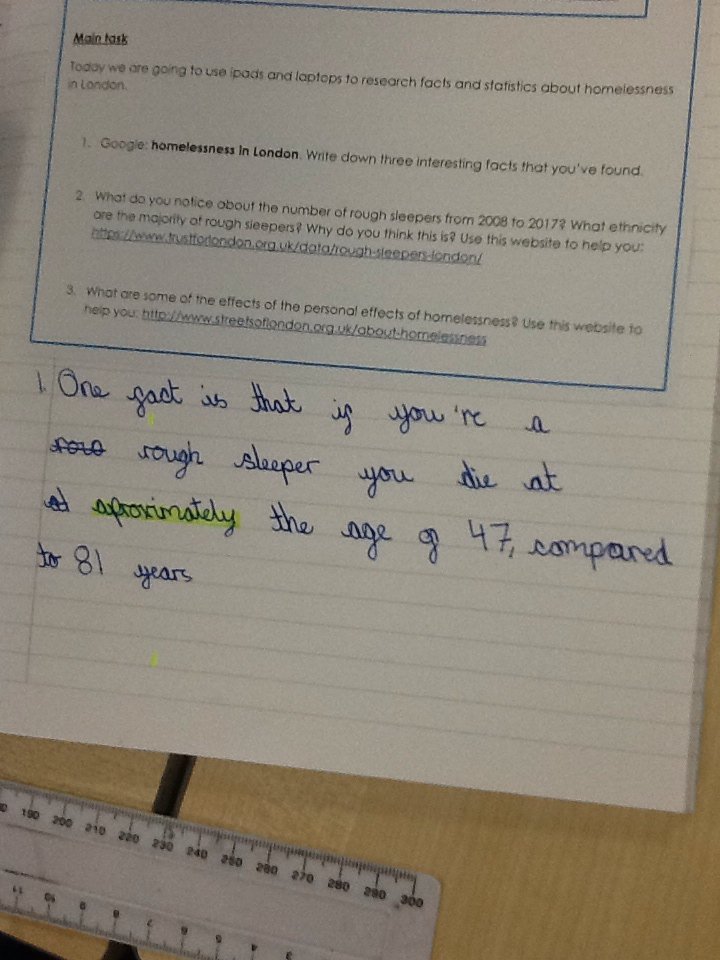 Main task
Today we are going to use ipads and laptops to research facts and statistics about homelessness
in London.
1. Google: homelessness in London. Write down three interesting facts that you've found.
2. What do you notice about the number of rough sleepers from 2008 to 2017? What ethnicity
are the majority of rough sleepers? Why do you think this is? Use this website to help you:
https://www.trustforlondon.org.uk/data/rough-sleepers-london/
3. What are some of the effects of the personal effects of homelessness? Use this website to
help you: http://www.streetsoflondon.org.uk/about-homelessness
1. One fact is that if you're a
rough sleeper you die at
aproximately the age of 47, compared
to 81 years
190 200 210 220 230 240 250 260 270 280 290 300
11 10 9 8 7 6 5 4 3